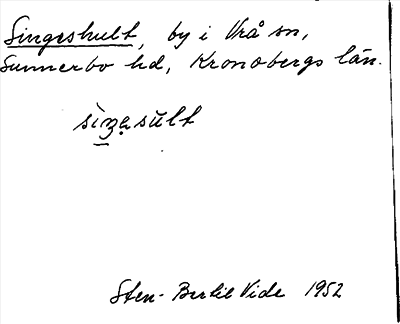 Singeshult, by i Vrå sn,
Sunnerbo hd, Kronobergs län.
sìŋ̠ạsŭlt
Sten-Bertil Vide 1952